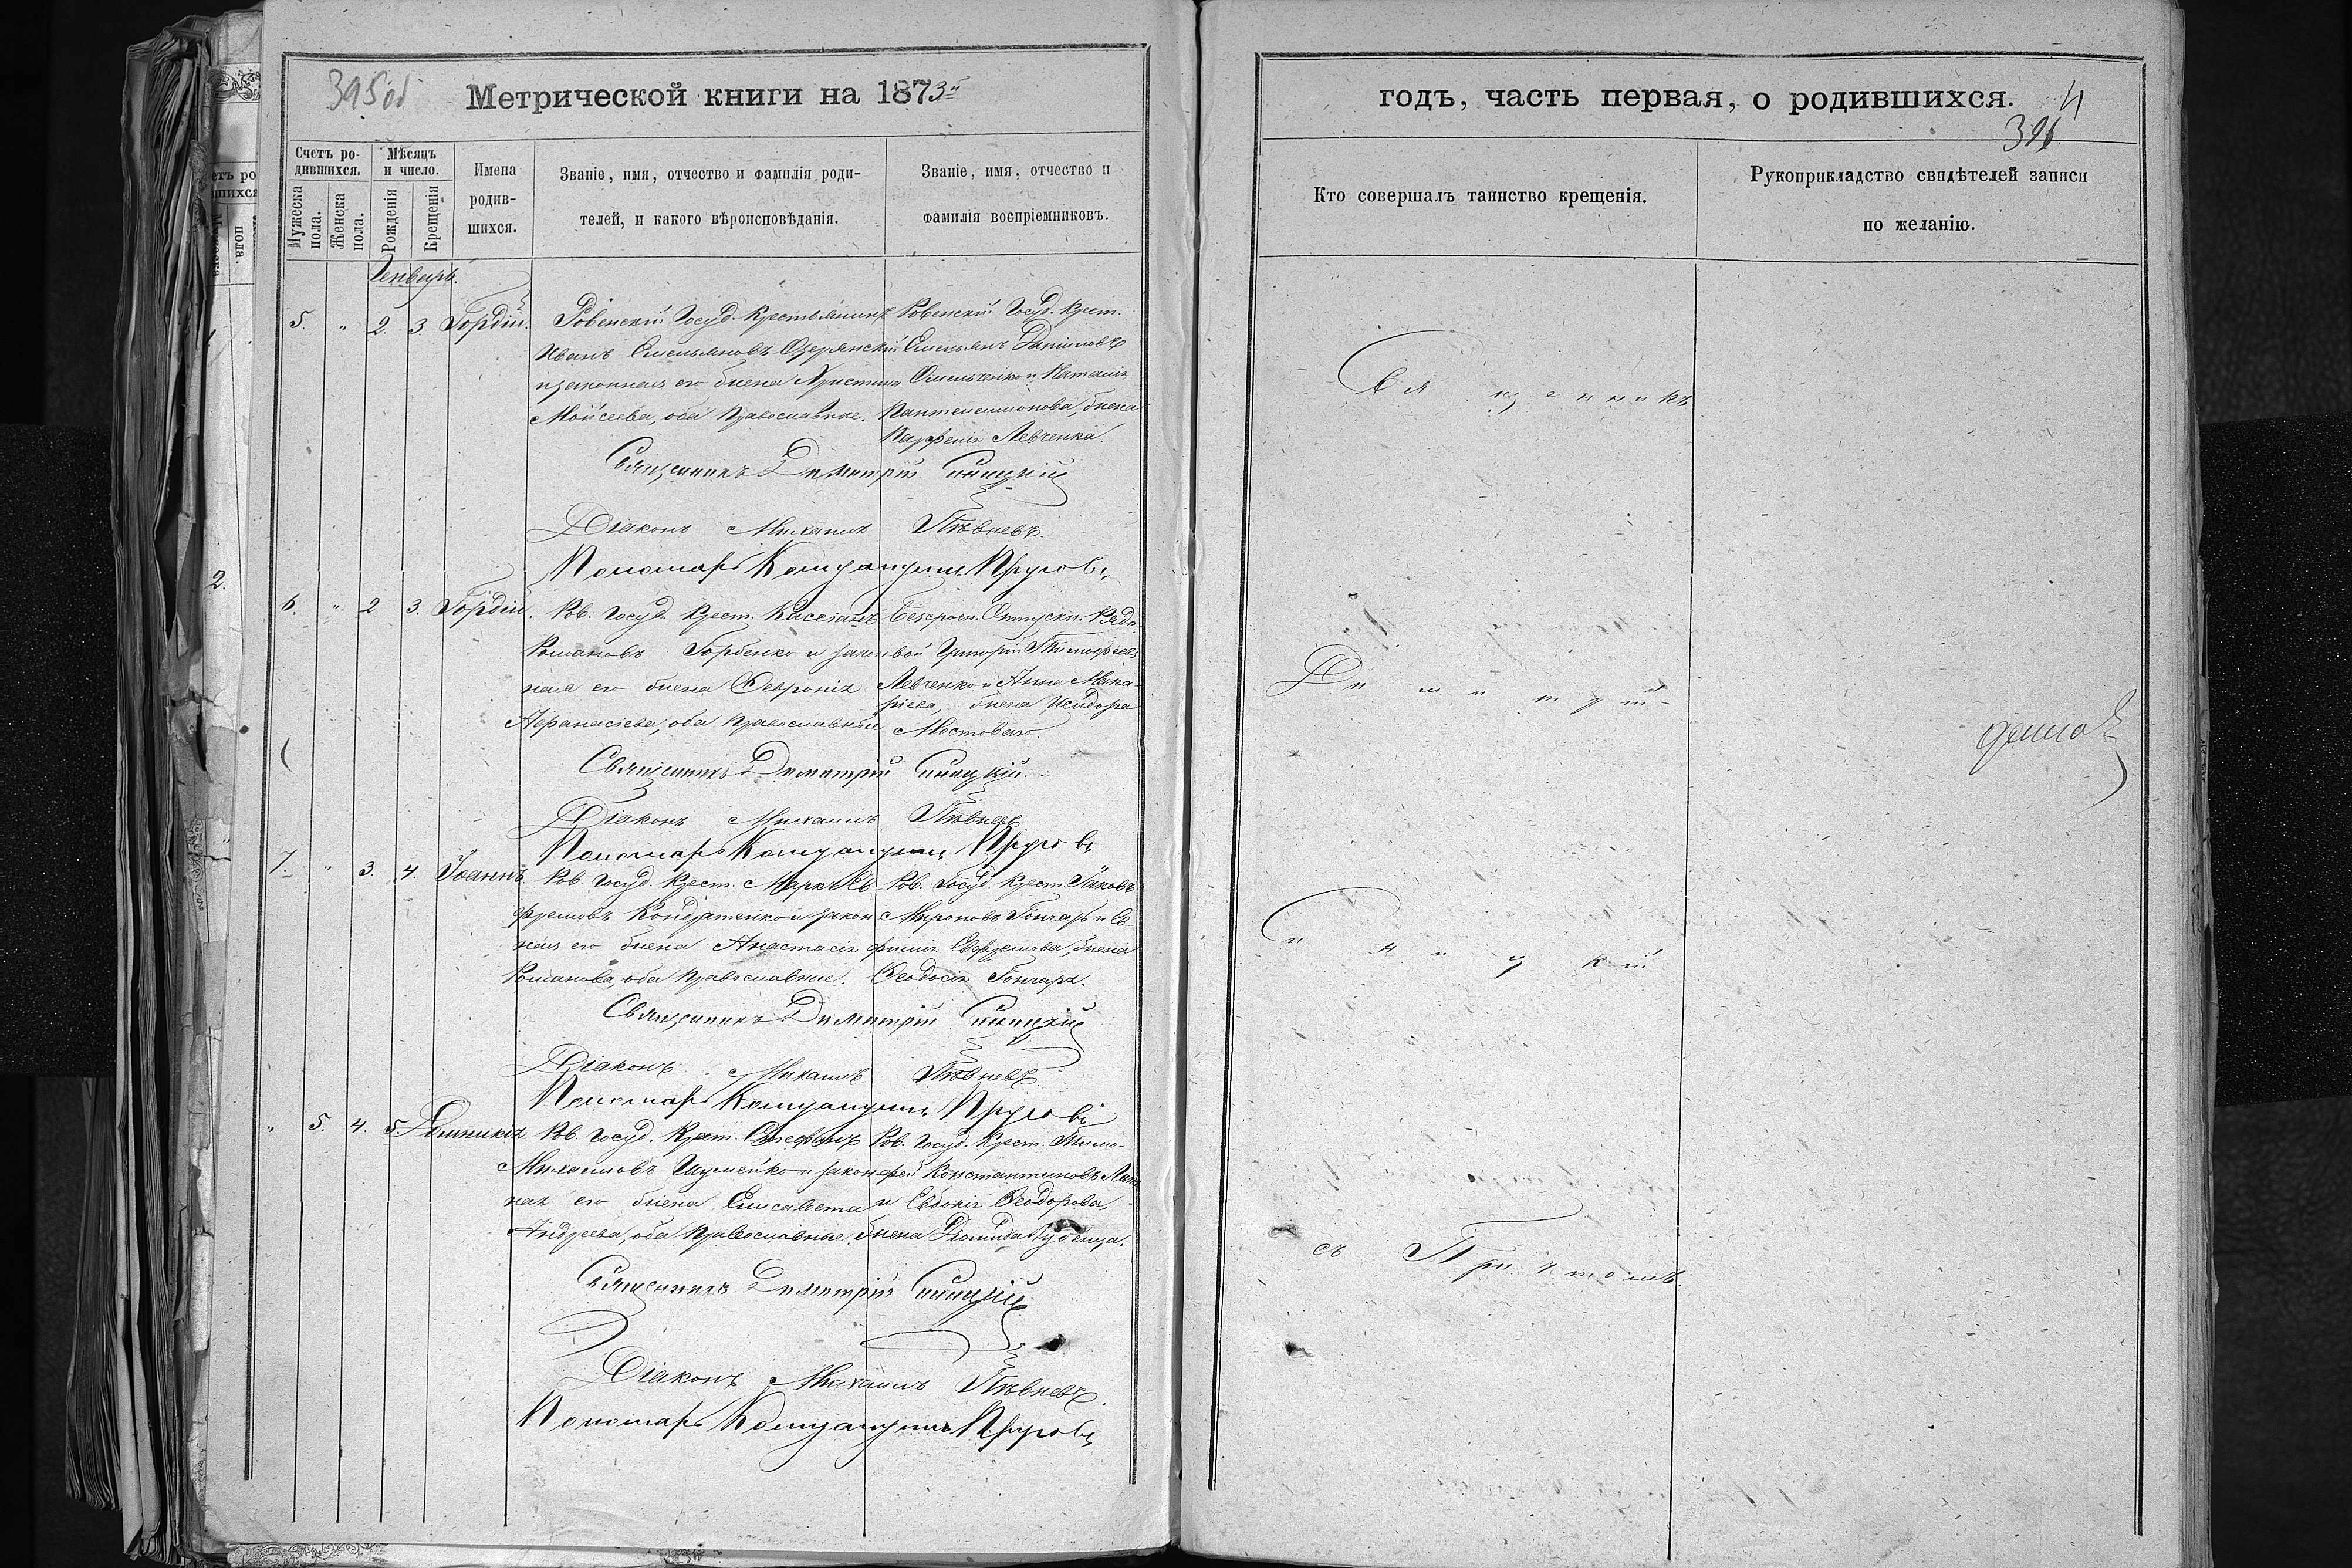 395об
Метрической книги на 1873й
Счетъ ро-
дившихся.
Мужеска
пола.
Женска
пола.
Мѣсяцъ
и число.
Рожденія
Крещенія
Имена
родив-
шихся.
Званіе, имя, отчество и фамилія роди-
телей, и какого вѣроисповѣданія.
Званіе, имя, отчество и
фамилія воспріемниковъ.
Генварь.
5. " 2. 3. Гордій.
Ровенскій Госуд. Крестьянинъ
Иванъ Емельяновъ Озерянскій
и законная его жена Христина
Моисеева, оба Православные.
Ровенскій Госуд. Крест.
Емельянъ Даниловъ
Омельченко и Наталія
Пантелеимонова, жена
Парфенія Левченка.
Священникъ Димитрій Синицкій
Діаконъ Михаилъ Пѣвневъ.
Пономарь
6. " 2 3. Гордій.
Ров. Госуд. Крест. Кассіанъ
Романовъ Горбенко и закон-
ная его жена Февронія
Афанасіева, оба Православные
Безсроч. Отпускн. Рядо-
вой Григорій Тимофеевъ
Левченко и Анна Мака-
ріева, жена Исидора
Мостоваго.
Священникъ Димитрій Синицкій.
Діаконъ Михаилъ Пѣвневъ
Пономарь
7. " 3. 4. Іоаннъ
Ров. Госуд. Крест. Маркъ Ев-
фремовъ Кондратенко и закон-
ная его жена Анастасія
Романова, оба Православные.
Ров. Госуд. Крест. Іаковъ
Мироновъ Гончаръ и Ев-
фимія Евфремова, жена
Феодосія Гончара.
Священникъ Димитрій Синицкій
Діаконъ Михаилъ Пѣвневъ
Пономарь
" 5. 4. 5. Домникія
Ров. Госуд. Крест. Стефанъ
Михаиловъ Шумейко и закон-
ная его жена Елисавета
Андреева, оба Православные.
Ров. Госуд. Крест. Тимо-
фей Константиновъ
и Евдокія Феодорова,
жена Діомида
Священникъ Димитрій Синицкій
Діаконъ Михаилъ Пѣвневъ.
Пономарь
годъ, часть первая, о родившихся.
4
396
Кто совершалъ таинство крещенія.
Рукоприкладство свидѣтелей записи
по желанію.
Священникъ
Димитрій
Синицкій
съ Причтомъ.